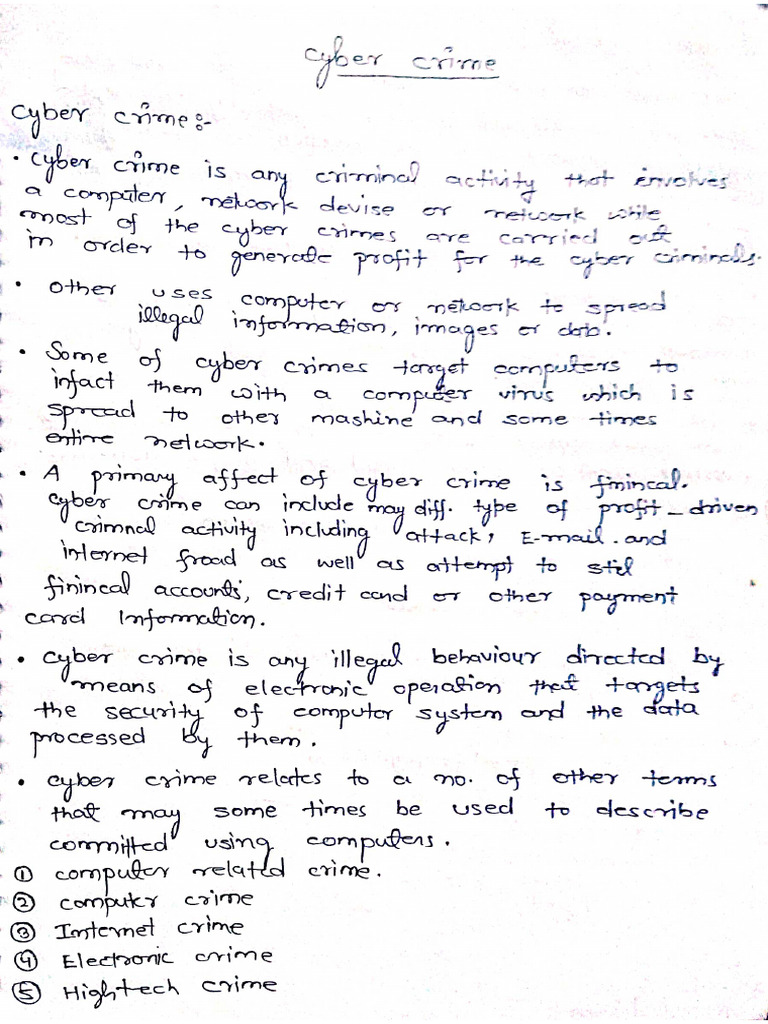 cyber crime
cyber crime:-
• cyber crime is any criminal activity that involves
a computer, network devise or network while
most of the cyber crimes are carried out
in order to generate profit for the cyber criminals.
• other uses computer or network to spread
illegal information, images or data.
• Some of cyber crimes target computers to
infact them with a computer virus which is
spread to other mashine and some times
entire network.
• A primary affect of cyber crime is finincal.
cyber crime can include may diff. type of profit-driven
crimnal activity including attack, E-mail and
internet froad as well as attempt to stel
finincal accounts, credit card or other payment
card Information.
• cyber crime is any illegal behaviour directed by
means of electronic operation that targets
the security of computer system and the data
processed by them.
• cyber crime relates to a no. of other terms
that may some times be used to describe
committed using computers.
① computer related crime.
② computer crime
③ Internet crime
④ Electronic crime
⑤ Hightech crime